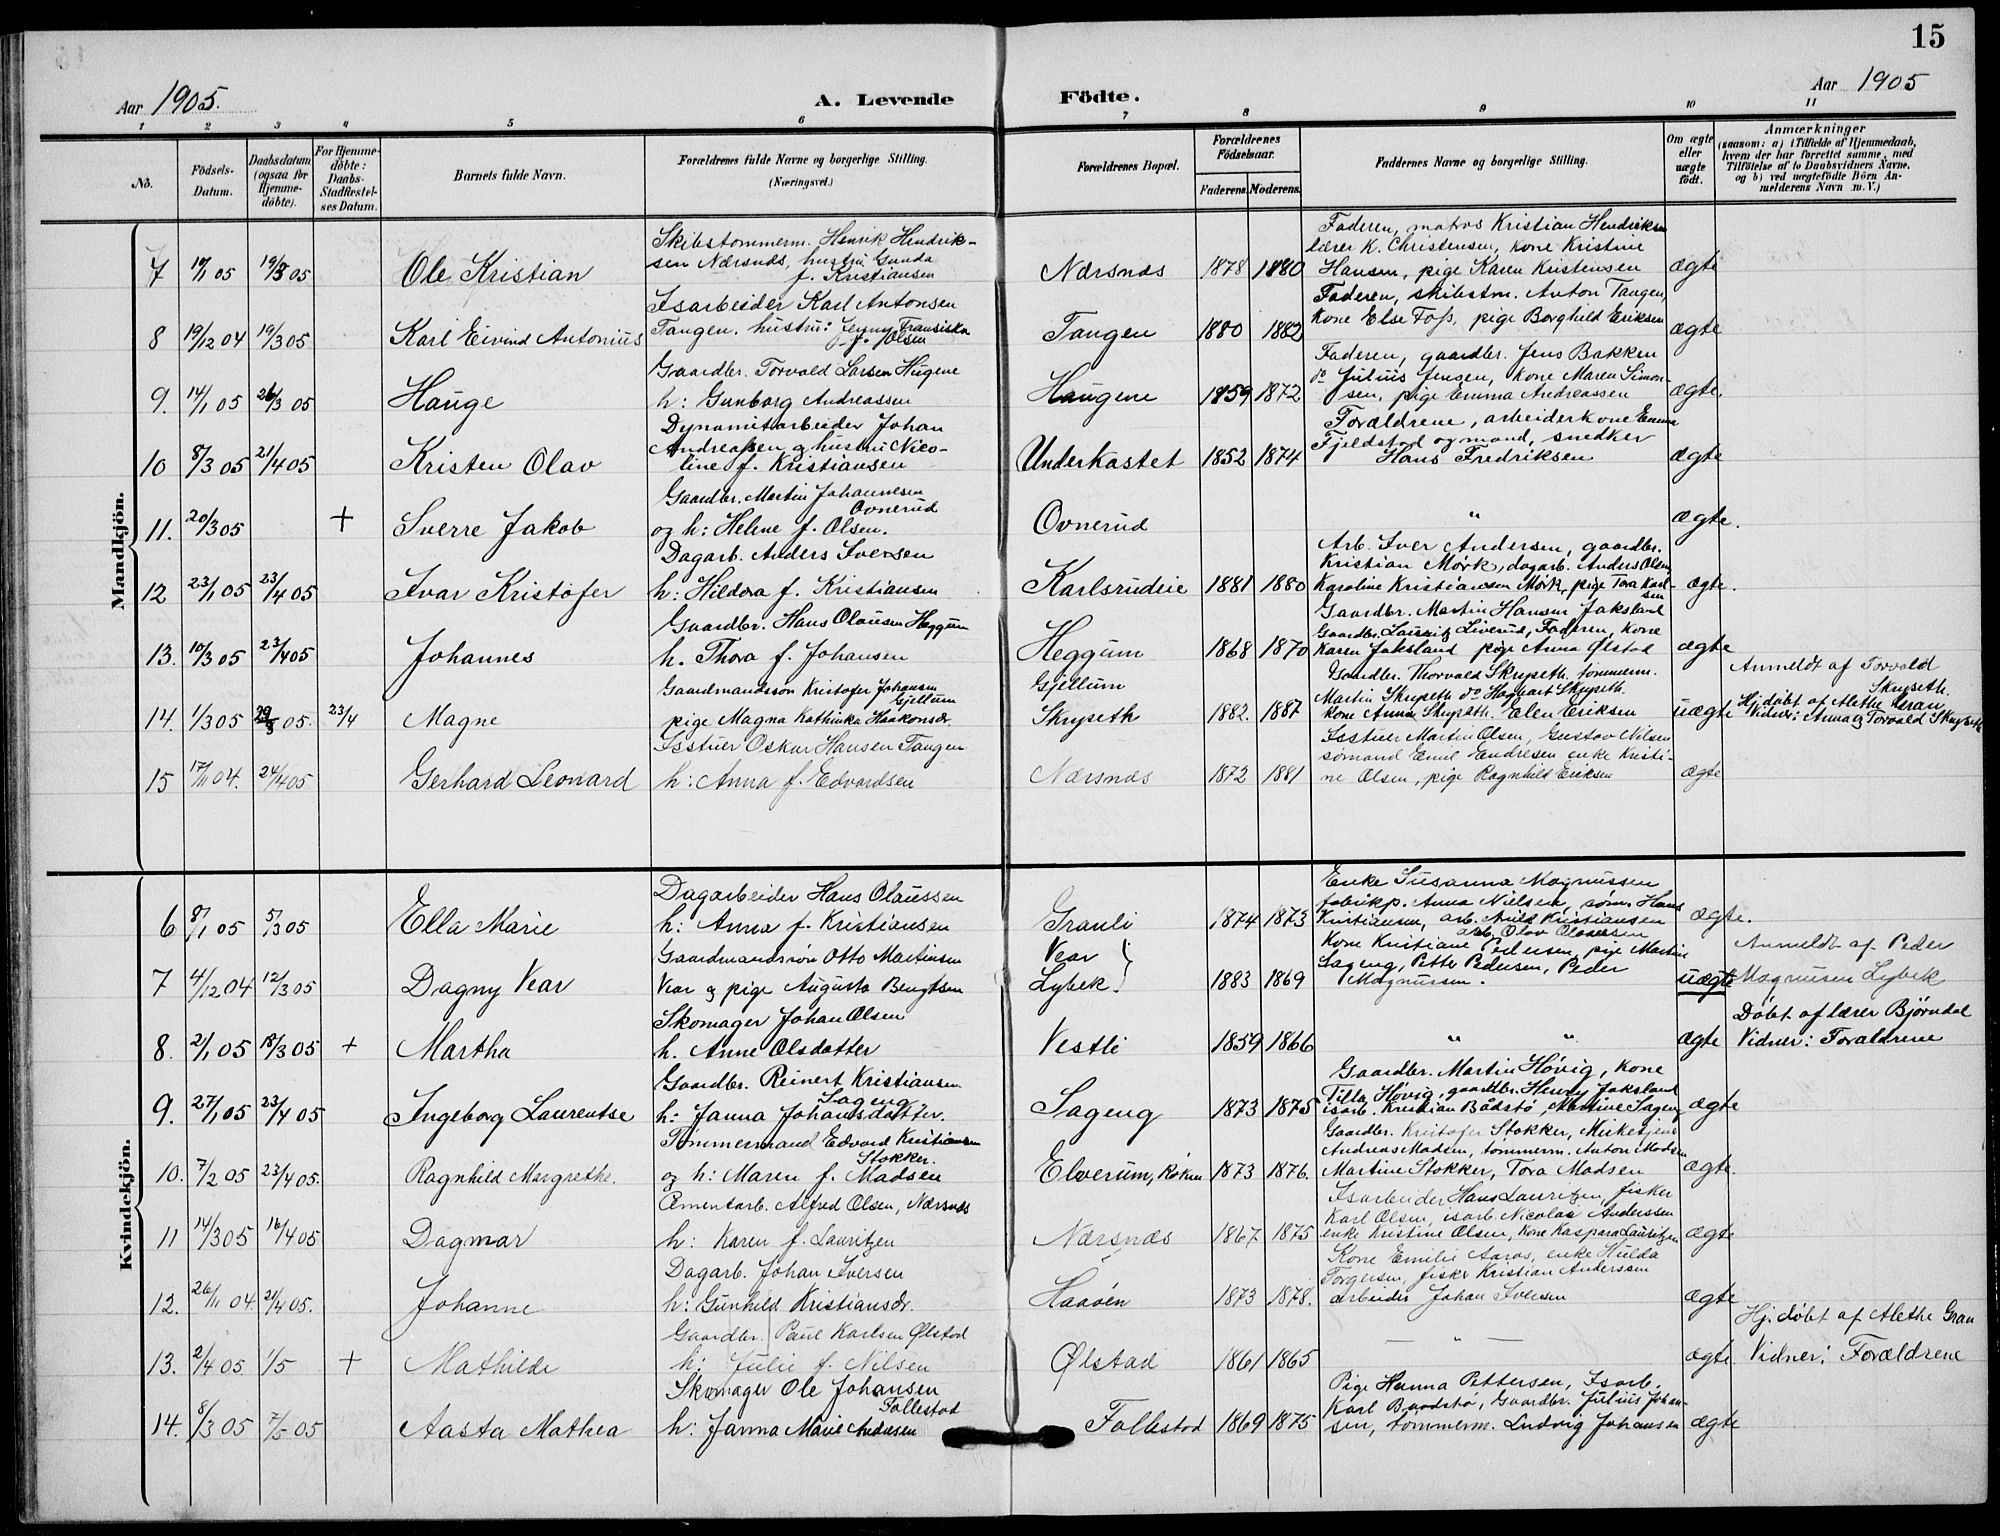 15
Aar 1905.
A. Levende Födte.
Aar 1905
1 2 3 4 5 6 7 8 9 10 11
No.
Födsels-Datum.
Daabsdatum (ogsaa för Hjemme-döbte).
For Hjemme-döbte: Daabs-Stadfæstel-ses Datum.
Barnets fulde Navn.
Forældrenes fulde Navne og borgerlige Stilling.
(Næringsvei.)
Forældrenes Bopæl.
Forældrenes Födselsaar.
Faderens. Moderens.
Faddernes Navne og borgerlige Stilling.
Om ægte eller uægte födt.
Anmærkninger
(saasom: a) i Tilfælde af Hjemmedaab, hvem der har forrettet samme, med Tilföielse af to Daabsvidners Navne, og b) ved uægtefödte Börn An-melderens Navn m. V.)
Mandkjön.
7 19/3 05 Ole Kristian
Skibstømmerm. Henrik Hendrik-
sen Nærsnæs, hustru Gunda
f. Kristiansen
Nærsnæs 1878 1880
Faderen, matros Kristian Hendriksen
lærer K. Christensen, kone Kristine
Hansen, pige Karen Kristensen
ægte
8 19/12 04 19/3 05 Karl Eivind Antonius
Isarbeider Karl Antonsen
Tangen. hustru: Jenny Fransiska
f. Olsen
Tangen 1880 1882
Faderen, skibstm. Anton Tangen,
kone Else Foss, pige Borghild Eriksen
ægte
9. 14/1 05 26/3 05 Hauge
Gaardbr. Torvald Larsen Hugene
h: Gunborg Andreassen
Haugene 1859 1872
Faderen, gaardbr. Jens Bakken
do Julius Jensen, kone Maren Simon-
sen, pige Emma Andreassen
ægte.
10 8/3 05 21/4 05 Kristen Olav
Dynamitarbeider Johan
Andreassen og hustru Nico-
line f. Kristiansen
Underkastet 1852 1874
Forældrene, arbeiderkone Emma
Fjeldstad og mand, snedker
Hans Fredriksen
ægte
11. 20/3 05 + Sverre Jakob
Gaardbr. Martin Johannesen
Ovnerud
og h: Helene f. Olsen.
Ovnerud
"
ægte.
12 23/1 05 23/4 05 Ivar Kristofer
Dagarb. Anders Iversen
h: Hildora f. Kristiansen
Karlsrudeie 1881 1880
Arb. Iver Andersen, gaardbr.
Kristian Mørk, dagarb. Anders Olsen
Karoline Kristiansen Mørk, pige Tora Karl-
sen
ægte.
13. 10/3 05 23/4 05 Johannes
Gaardbr. Hans Olausen Heggum
h. Thora f. Johansen
Heggum 1868 1870
Gaardbr. Martin Hansen Jaksland
Gaardbr. Lauritz Liverud, Faderen, kone
Karen Jaksland pige Anna Ølstad
ægte
14. 1/3 05 05. 23/4 Magne
Gaardmandssøn Kristofer Johansen
Gjellum
pige Magna Kathinka Haakonsdr.
Gjellum
Skryseth 1882. 1887
Gaardbr. Thorvald Skryseth tømmerm.
Martin Skryseth do Hagbart Skryseth.
kone Anna Skryseth. Elen Eriksen
uægte
Anmeldt af Torvald
Skryseth.
Hj. døbt af Alethe Gran
Vidner: Anna og Torvald Skryseth
15 17/11 04. 24/4 05 Gerhard Leonard
Isstuer Oskar Hansen Tangen
h: Anna f. Edvardsen
Nærsnæs 1872 1881
Isstuer Martin Olsen, Gustav Nilsen
sømand Emil Endresen enke Kristi-
ne Olsen, pige Ragnhild Eriksen
ægte
Kvindekjön.
6 8/1 05 5/3 05 Ella Marie
Dagarbeider Hans Olaussen
h: Anna f. Kristiansen
Granli 1874 1873
Enke Susanna Magnussen
fabrikp. Anna Nielsen, søm. Hans
Kristiansen, arb. Arild Kristiansen
arb. Olav Olaussen
ægte.
7 4/12 04 12/3 05 Dagny Vear
Gaardmandssøn Otto Martinsen
Vear og pige Augusta Bengtsen
Vear
Lybek. 1883 1869
Kone Kristiane Pedersen, pige Martine
Sageng, Petter Pedersen, Peder
Magnussen.
uægte
Anmeldt af Peder
Magnusen Lybek
8. 2/1 05 18/3 05 + Martha
Skomager Johan Olsen
h. Anne Olsdatter
Vestli 1859 1866
" "
ægte
Døbt af lærer Bjørndal
Vidner: Forældrene
9. 27/1 05 23/4 05 Ingeborg Laurentse
Gaardbr. Reinert Kristiansen
Sageng
h: Janna Johansdatter.
Sageng 1873 1875
Gaardbr. Martin Høvig, kone
Tilla Høvig, gaardbr. Henry Jaksland
isarb. Kristian Bådstø, Martine Sageng
ægte
10. 7/2 05 23/4 05. Ragnhild Margrethe.
Tømmermand Edvard Kristiansen
Stokker.
og h: Maren f. Madsen
Elverum, Røken 1873 1876.
Gaardbr. Kristofer Stokker,
Andreas Madsen, tømmerm. Anton Madsen
Martine Stokker, Tora Madsen
ægte.
11 14/3 05 16/4 05 Dagmar
Cementarb. Alfred Olsen, Nærsnæs
h: Karen f. Lauritzen
Nærsnæs 1867 1875
Isarbeider Hans Lauritzen, fisker
Karl Olsen, isarb. Nicolai Anderssen
enke Kristine Olsen, Kone Kaspara Lauritzen
ægte
12. 26/11 04. 21/4 05. Johanne
Dagarb. Johan Iversen
h: Gunhild Kristiansdr.
Haaøen 1873 1878.
Kone Emilie Aaros, enke Hulda
Torgersen, fisker Kristian Anderssen
arbeider Johan Iversen
ægte
13. 2/4 05 1/5 + Mathilde
Gaardbr. Paul Karlsen Ølstad
h: Julie f. Nilsen
Ølstad 1861 1865
— " —
ægte.
Hj. døbt af Alethe Gran
Vidner: Forældrene
14. 8/3 05 7/5 05 Aasta Mathea
Skomager Ole Johansen
Follestad
h: Janna Marie Andersen
Follestad 1869 1875
Pige Hanna Pettersen, Isarb.
Karl Baadstø, Gaardbr. Julius Johan-
sen, tømmerm. Ludvig Johansen
ægte